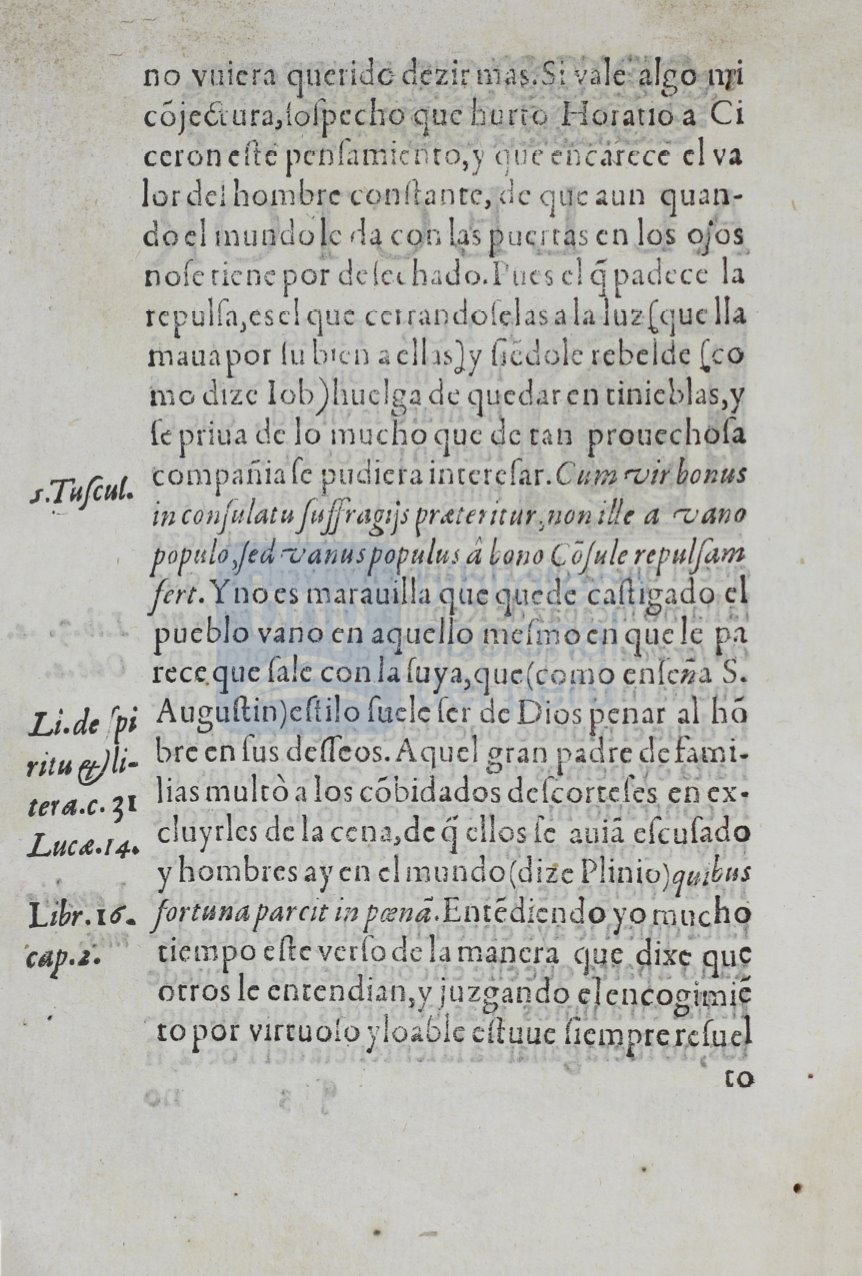 no vuiera querido dezir mas. Si vale algo mi
cõjectura, ſoſpecho que hurto Horatio a Ci
ceron eſte penſamiento, y que encarece el va
lor del hombre conſtante, de que aun quan-
do el mundo le da con las puertas en los ojos
no ſe tiene por deſechado. Pues el q̃ padece la
repulſa, es el que cerrandoſelas a la luz (que lla
maua por ſu bien a ellas) y ſiẽdole rebelde (co
mo dize Iob) huelga de quedar en tinieblas, y
ſe priua de lo mucho que de tan prouechoſa
s.Tuſcul.
compañia ſe pudiera intereſar. Cum vir bonus
in conſulatu ſuffragijs præteritur, non ille a vano
populo, ſed vanus populus â bono Cõſule repulſam
fert. Y no es marauilla que quede caſtigado el
pueblo vano en aquello meſmo en que le pa
rece que ſale con la ſuya, que (como enſeña S.
Li.de ſpi
ritu & li-
tera.c. 31
Lucæ.14.
Auguſtin) eſtilo ſuele ſer de Dios penar al hõ
bre en ſus deſſeos. Aquel gran padre de fami-
lias multò a los cõbidados deſcorteſes en ex-
cluyrles de la cena, de q̃ ellos ſe auiã eſcuſado
y hombres ay en el mundo (dize Plinio) quibus
Libr.16.
cap.2.
fortuna parcit in pœnã. Entẽdiendo yo mucho
tiempo eſte verſo de la manera que dixe que
otros le entendian, y juzgando el encogimiẽ
to por virtuoſo y loable eſtuue ſiempre reſuel
to